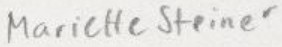 Mariette Steiner